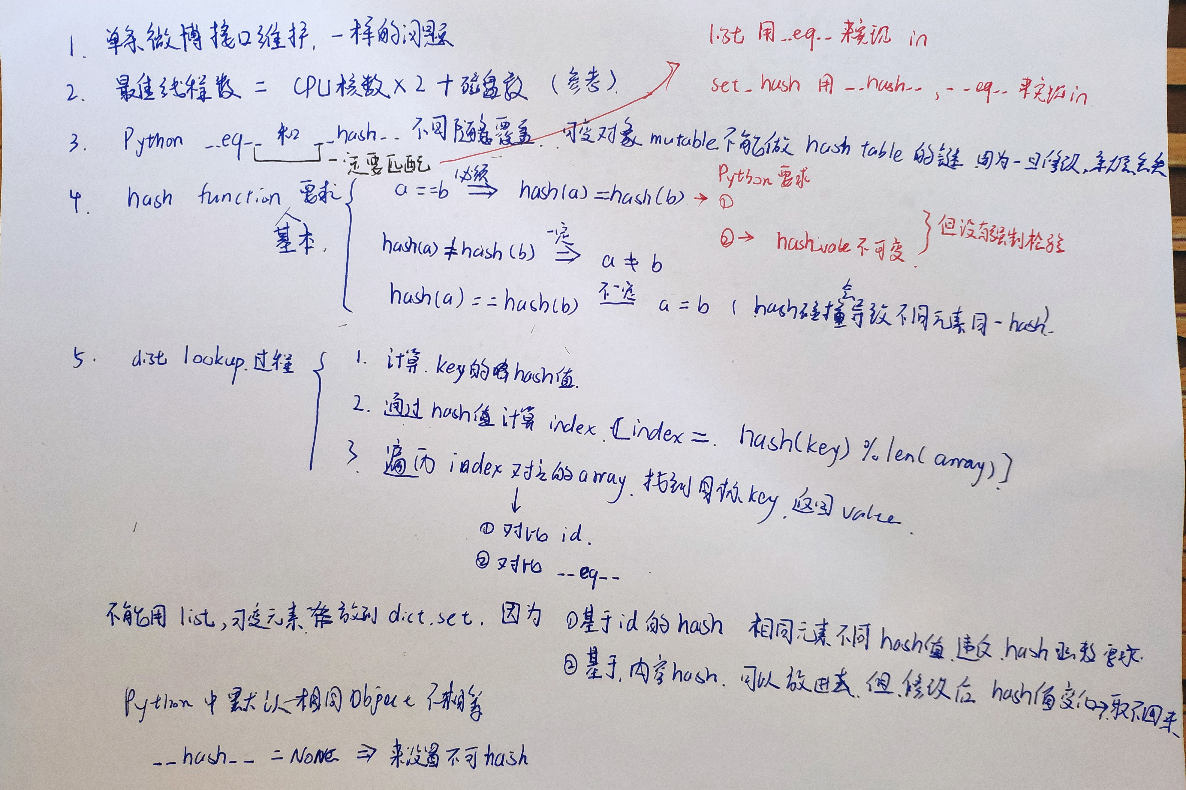 1. 单条微博接口维护, 一样的问题
list 用 __eq__ 来实现 in
2. 最佳线程数 = CPU核数×2+磁盘数 (参考)
set hash 用 __hash__, __eq__ 来实现in
3. Python __eq__ 和 __hash__ 不可随意覆盖. 可变对象 mutable 不能做 hash table 的键 因为一旦修改,就会丢失
一定要匹配
4. hash function 要求 基本
a==b 必须 ⇒ hash(a)=hash(b) →
Python 要求
①
② → hash value 不可变. 但没有强制检验
hash(a)≠hash(b) 一定 ⇒ a≠b
hash(a)==hash(b) 不一定 a=b ( hash碰撞会导致不同元素同一hash)
5. dict lookup 过程
1. 计算 key的hash值.
2. 通过hash值计算 index. [index = hash(key) % len(array)]
3. 遍历 index 对应的array. 找到目标key, 返回 value.
↓
① 对比 id.
② 对比 __eq__
不能用 list, 可变元素 放到 dict.set. 因为 ①基于id的hash 相同元素不同hash值, 违反 hash 函数要求.
②基于内容hash. 可以放进去, 但修改后 hash值变化→取不回来
Python 中默认相同Object 不相等
__hash__ = NONE ⇒ 来设置不可hash